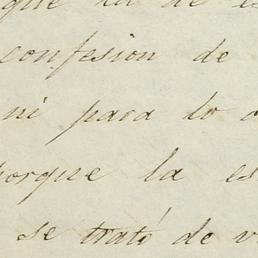 que la de es
confesion de
ni para lo
porque la es
se trató de v